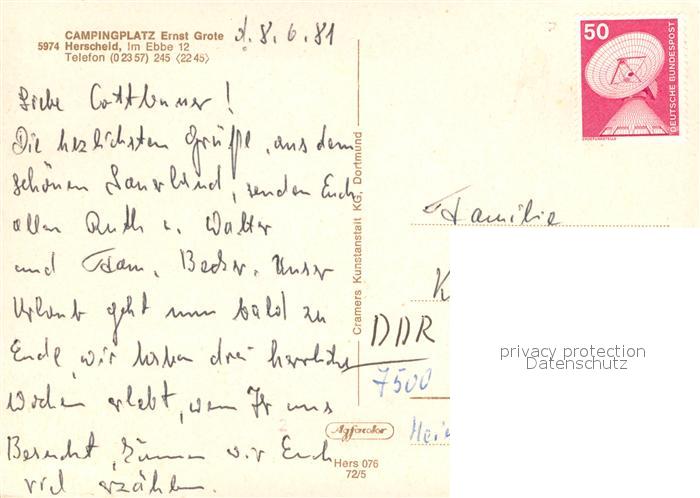 CAMPINGPLATZ Ernst Grote
5974 Herscheid, Im Ebbe 12
Telefon (0 23 57) 245 (22 45)
d. 8. 6. 81
Liebe Cottbuser!
Die herzlichsten Grüße, aus dem
schönen Sauerland, senden Euch
allen Ruth u. Walter
und Fam. Becker. Unser
Urlaub geht nun bald zu
Ende, wir haben drei herrliche
Wochen erlebt, wenn Ihr uns
Besucht, können wir Euch
viel erzählen.
Cramers Kunstanstalt KG, Dortmund
Agfacolor
Hers 076
72/5
50
DEUTSCHE BUNDESPOST
ERDFUNKSTELLE
Familie
K
DDR
7500
privacy protection
Datenschutz